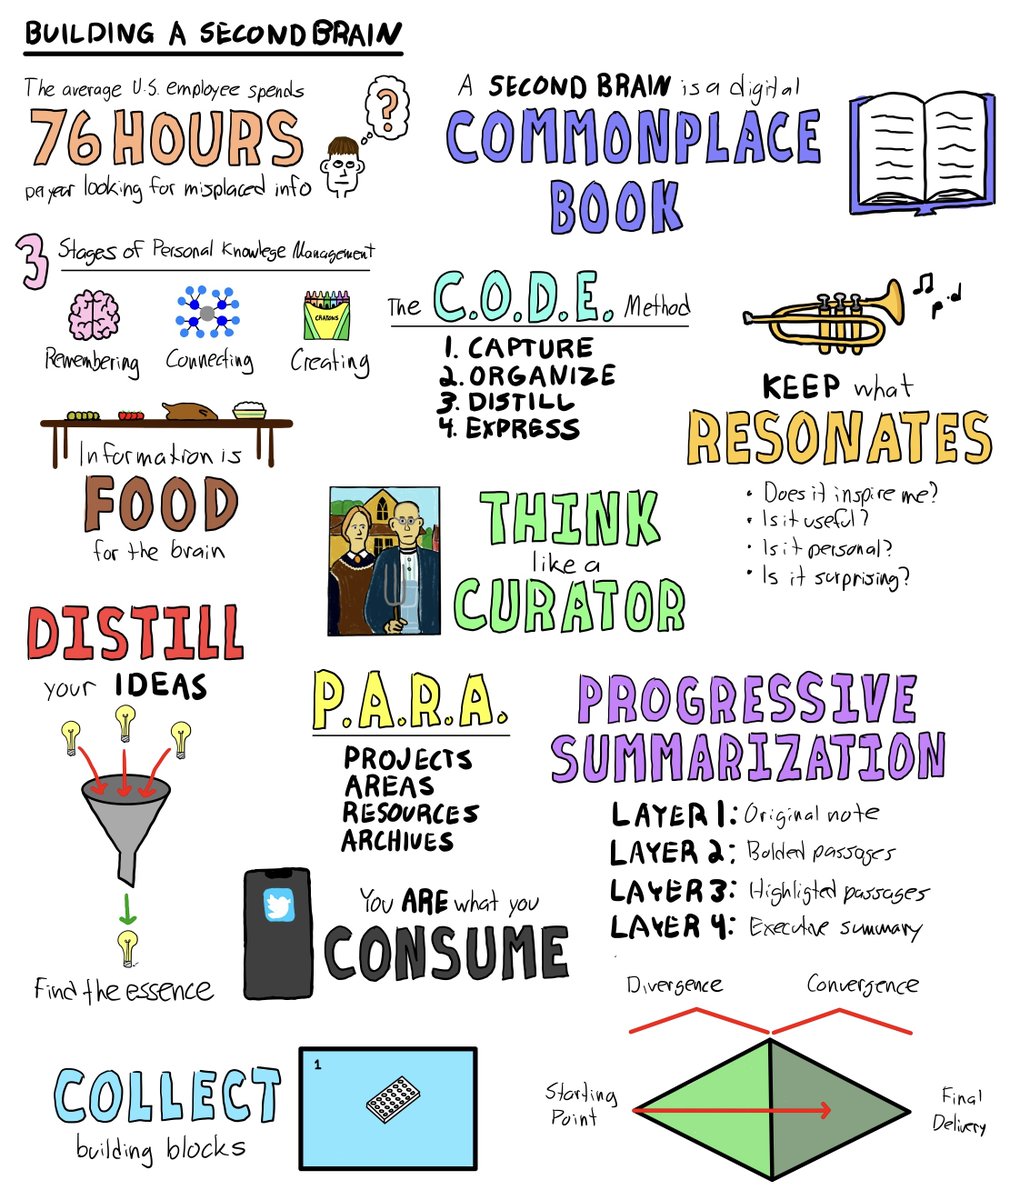 BUILDING A SECOND BRAIN
The average U.S. employee spends
76 HOURS
per year looking for misplaced info
?
A SECOND BRAIN is a digital
COMMONPLACE
BOOK
3 Stages of Personal Knowlege Management
Remembering
Connecting
CRAYONS
Creating
The C.O.D.E. Method
1. CAPTURE
2. ORGANIZE
3. DISTILL
4. EXPRESS
KEEP what
RESONATES
• Does it inspire me?
• Is it useful?
• Is it personal?
• Is it surprising?
Information is
FOOD
for the brain
THINK
like a
CURATOR
DISTILL
your IDEAS
Find the essence
P.A.R.A.
PROJECTS
AREAS
RESOURCES
ARCHIVES
PROGRESSIVE
SUMMARIZATION
LAYER 1: Original note
LAYER 2: Bolded passages
LAYER 3: Highligted passages
LAYER 4: Executive summary
You ARE what you
CONSUME
Divergence
Convergence
Starting
Point
Final
Delivery
COLLECT
building blocks
1